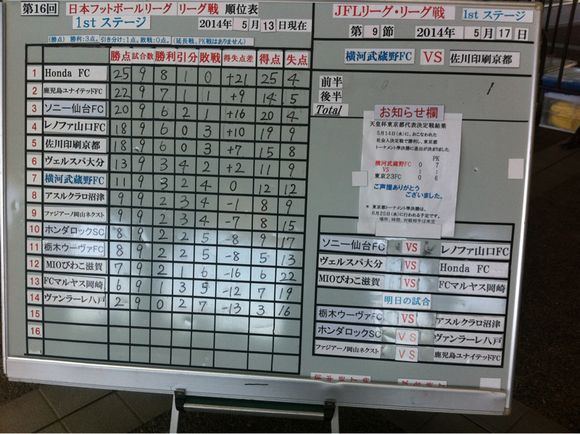 第16回 日本フットボールリーグ リーグ戦 順位表
1stステージ 2014年5月13日現在
(勝点) 勝利:3点。引き分け:1点。敗戦:0点。
勝点 試合数 勝利 引分 敗戦 得失点差 得点 失点
1 Honda FC 25 9 8 1 0 +21 25 4
2 鹿児島ユナイテッドFC 22 9 7 1 1 +9 14 5
3 ソニー仙台FC 20 9 6 2 1 +16 20 4
4 レノファ山口FC 18 9 6 0 3 +10 19 9
5 佐川印刷京都 18 9 6 0 3 +7 15 8
6 ヴェルスパ大分 13 9 3 4 2 +2 11 9
7 横河武蔵野FC 11 9 3 2 4 0 12 12
8 アスルクラロ沼津 9 9 2 3 4 -1 8 9
9 ファジアーノ岡山ネクスト 9 9 2 3 4 -7 8 15
10 ホンダロックSC 8 9 2 2 5 -8 9 17
11 栃木ウーヴァFC 8 9 2 2 5 -8 5 13
12 MIOびわこ滋賀 7 9 2 1 6 -16 6 22
13 FCマルヤス岡崎 6 9 1 3 5 -12 7 19
14 ヴァンラーレ八戸 2 9 0 2 7 -13 3 16
15
16
JFLリーグ・リーグ戦 1stステージ
第9節 2014年5月17日
横河武蔵野FC VS 佐川印刷京都
前半 1
後半
Total
お知らせ欄
天皇杯東京都代表決定戦結果
5月14日(水)に、おこなわれた
社会人決定戦で勝利し、東京都
トーナメント準決勝に進出が決まりました
PK
横河武蔵野FC 0 7
VS 1
東京23FC 0 6
ご声援ありがとう
ございました。
ソニー仙台FC VS レノファ山口FC
ヴェルスパ大分 VS Honda FC
MIOびわこ滋賀 VS FCマルヤス岡崎
明日の試合
栃木ウーヴァFC VS アスルクラロ沼津
ホンダロックSC VS ヴァンラーレ八戸
ファジアーノ岡山ネクスト VS 鹿児島ユナイテッドFC